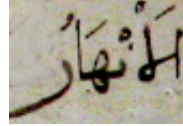 الَانْهَارُ